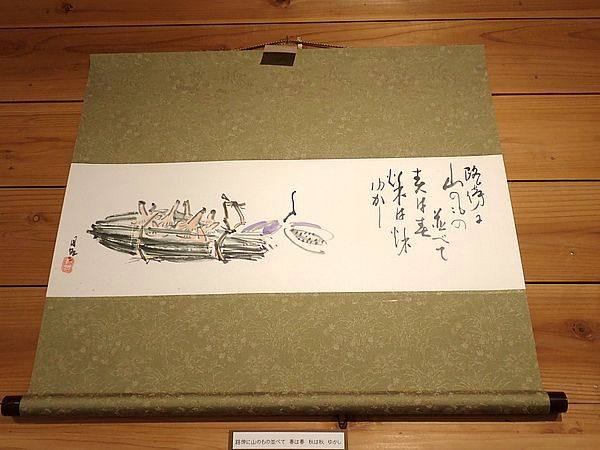 路傍に
山のもの
並べて
春は春
秋は秋
ゆかし
路傍に山のもの並べて　春は春　秋は秋　ゆかし